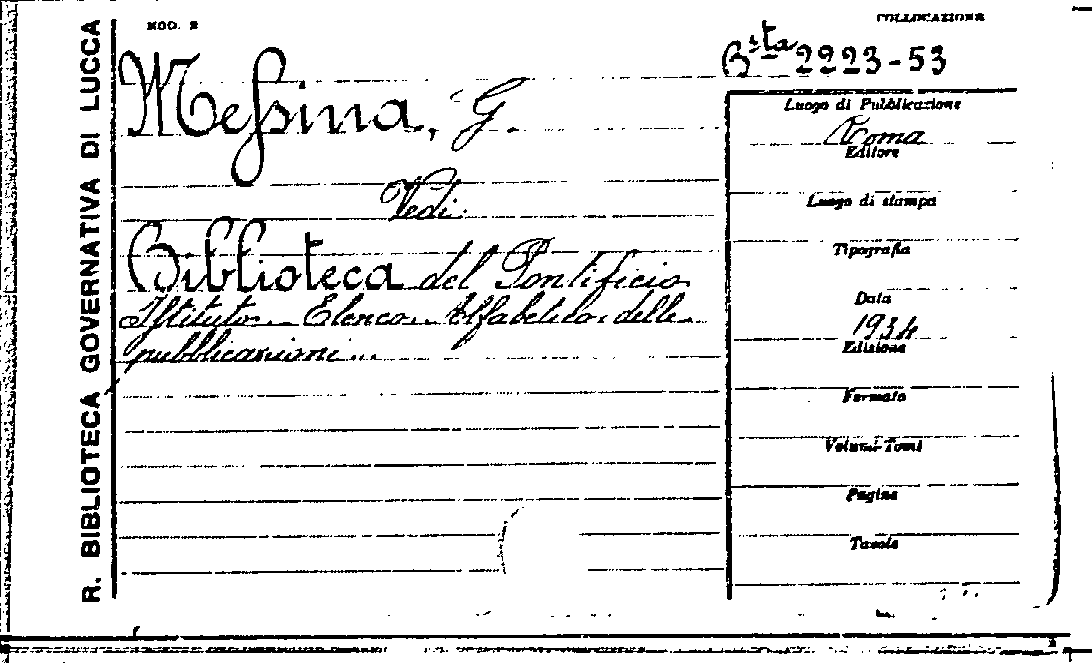 R. BIBLIOTECA GOVERNATIVA DI LUCCA
MOD. 2
COLLOCAZIONE
Bsta 2223-53
Meſsina, G.
Vedi:
Biblioteca del Pontificio
Istituto. Elenco Alfabetico delle
pubblicazioni...
Luogo di Pubblicazione
Roma
Editore
Luogo di stampa
Tipografia
Data
1934
Edizione
Formato
Volumi-Tomi
Pagine
Tavole